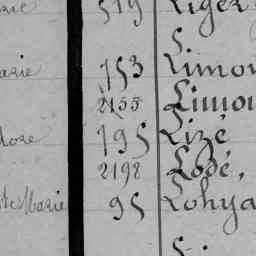 519 Liger
S
arie 753 Limou
2155 Limou
dore 195 Lizé
2198 Lodé,
te Marie 95 Lohya